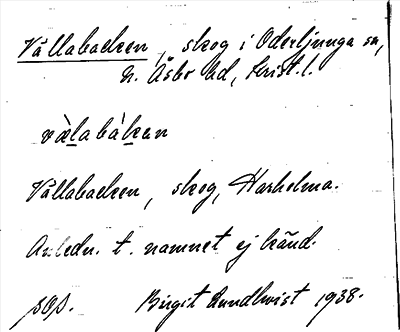 Vållabacken, skog i Oderljunga sn,
N. Åsbo hd, Krist. l.
vålabàkan
Vållabacken, skog, Harholma.
Anledn. t. namnet ej känd.
pgf.
Birgit Lundkvist 1938.